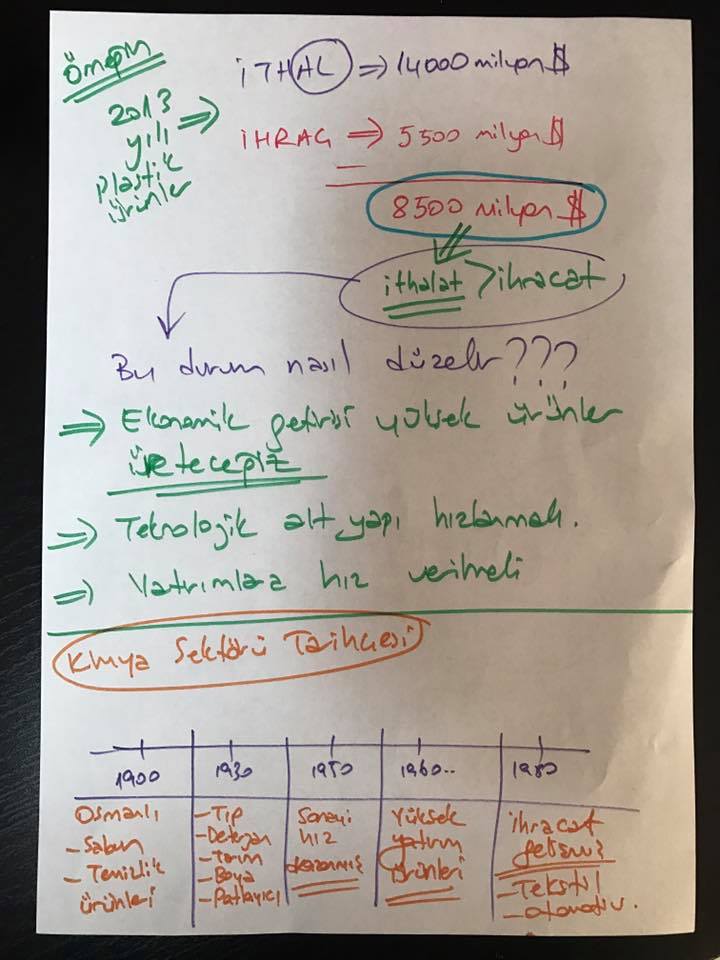 Örneğin
2013
yılı
plastik
ürünler
⇒
İTHAL ⇒ 14000 milyon $
İHRAÇ ⇒ 5500 milyon $
8500 milyon $
ithalat > ihracat
Bu durum nasıl düzelir???
⇒ Ekonomik getirisi yüksek ürünler
üreteceğiz
⇒ Teknolojik alt yapı hızlanmalı.
⇒ Yatırımlara hız verilmeli
Kimya Sektörü Tarihçesi
1900
1930
1950
1960..
1980
Osmanlı
- Sabun
- Temizlik
ürünleri
- Tıp
- Deterjan
- Tarım
- Boya
- Patlayıcı
Sanayi
hız
kazanmış
Yüksek
yatırım
ürünleri
ihracat
gelişmiş
- Tekstil
- otomotiv.